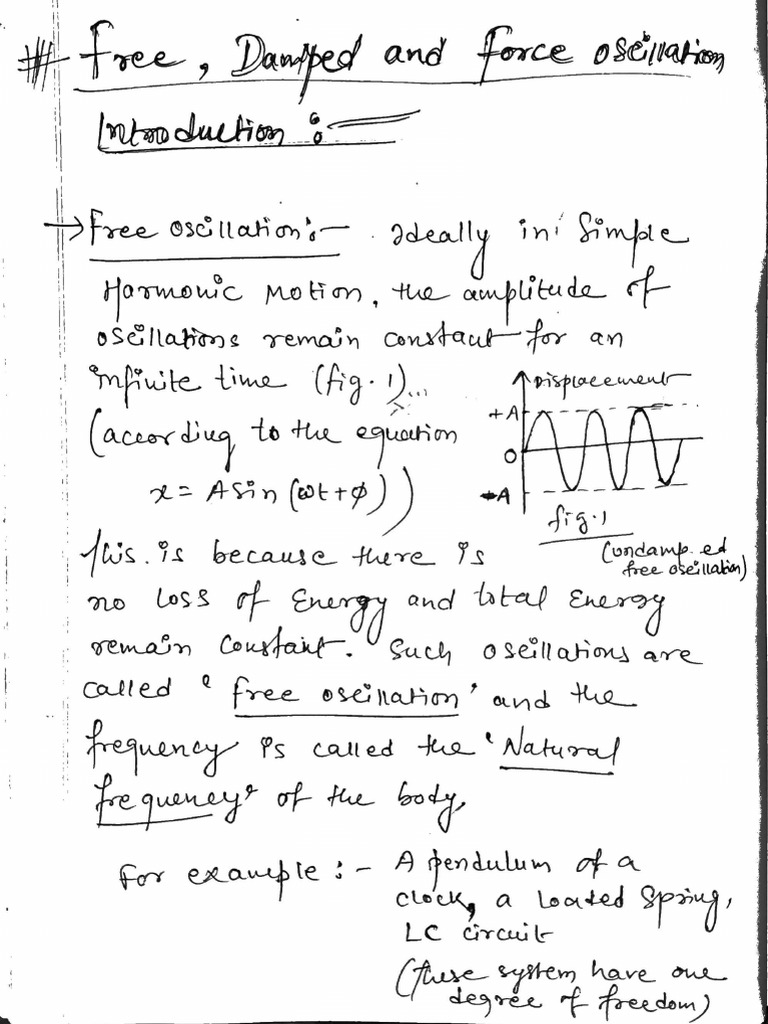 # Free, Damped and force oscillation
Introduction :-
→ free oscillation :- Ideally in Simple
Harmonic Motion, the amplitude of
oscillations remain constant for an
infinite time (fig. 1)...
(according to the equation
x = A sin (ωt + φ))
↑ Displacement
+A
0
-A
fig. 1
(undamped
free oscillation)
This is because there is
no loss of Energy and total Energy
remain constant. Such oscillations are
called ' free oscillation' and the
frequency is called the 'Natural
frequency' of the body,
For example :- A pendulum of a
clock, a loaded spring,
LC circuit
(these system have one
degree of freedom)